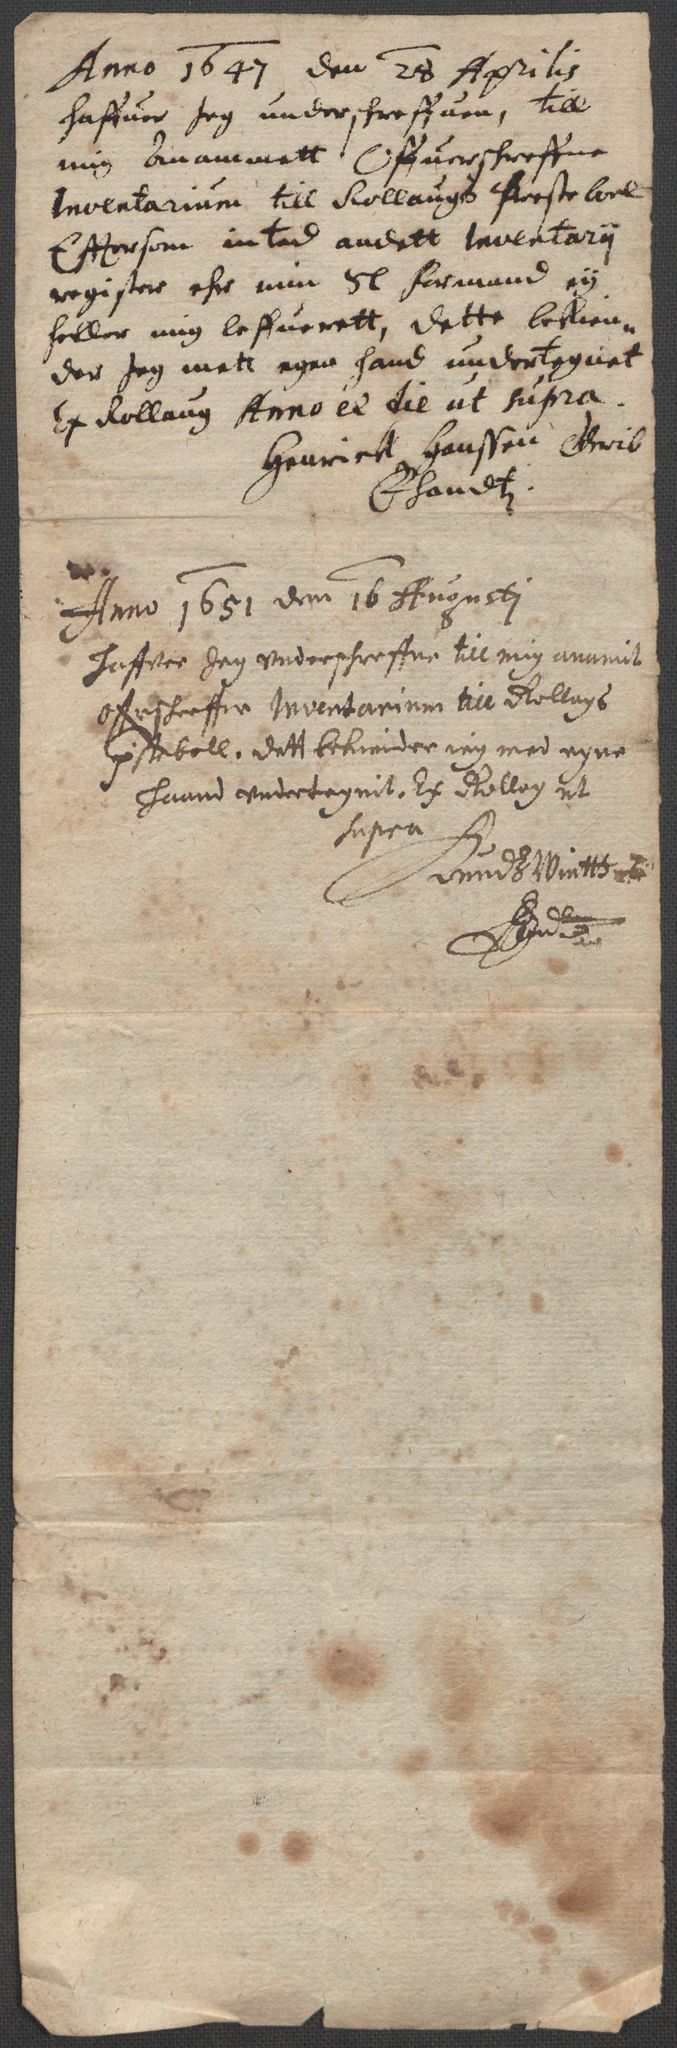 Anno 1647 den 28 Aprilis
haffuer Jeg underschreffuen, till
mig Anammett Offuerschreffne
Inventarium till Rollaugs Presteboel
Effterson inted andett Inventarij
register ehr min Sl formand ey
heller mig leffuerett, dette bekien-
der Jeg mett egen hand undertegnet
Ex Rollaug Anno et die ut supra.
Henrick Hanssen
Ehandtz.
Anno 1651 dem 16 Augustj
haffver Jeg vnderschreffne till mig anamit
ofrschreffne Inventarium till Rollags
psteboll. dett bekiender ieg med egne
haand vndertegnit. Ex Rollag ut
supra